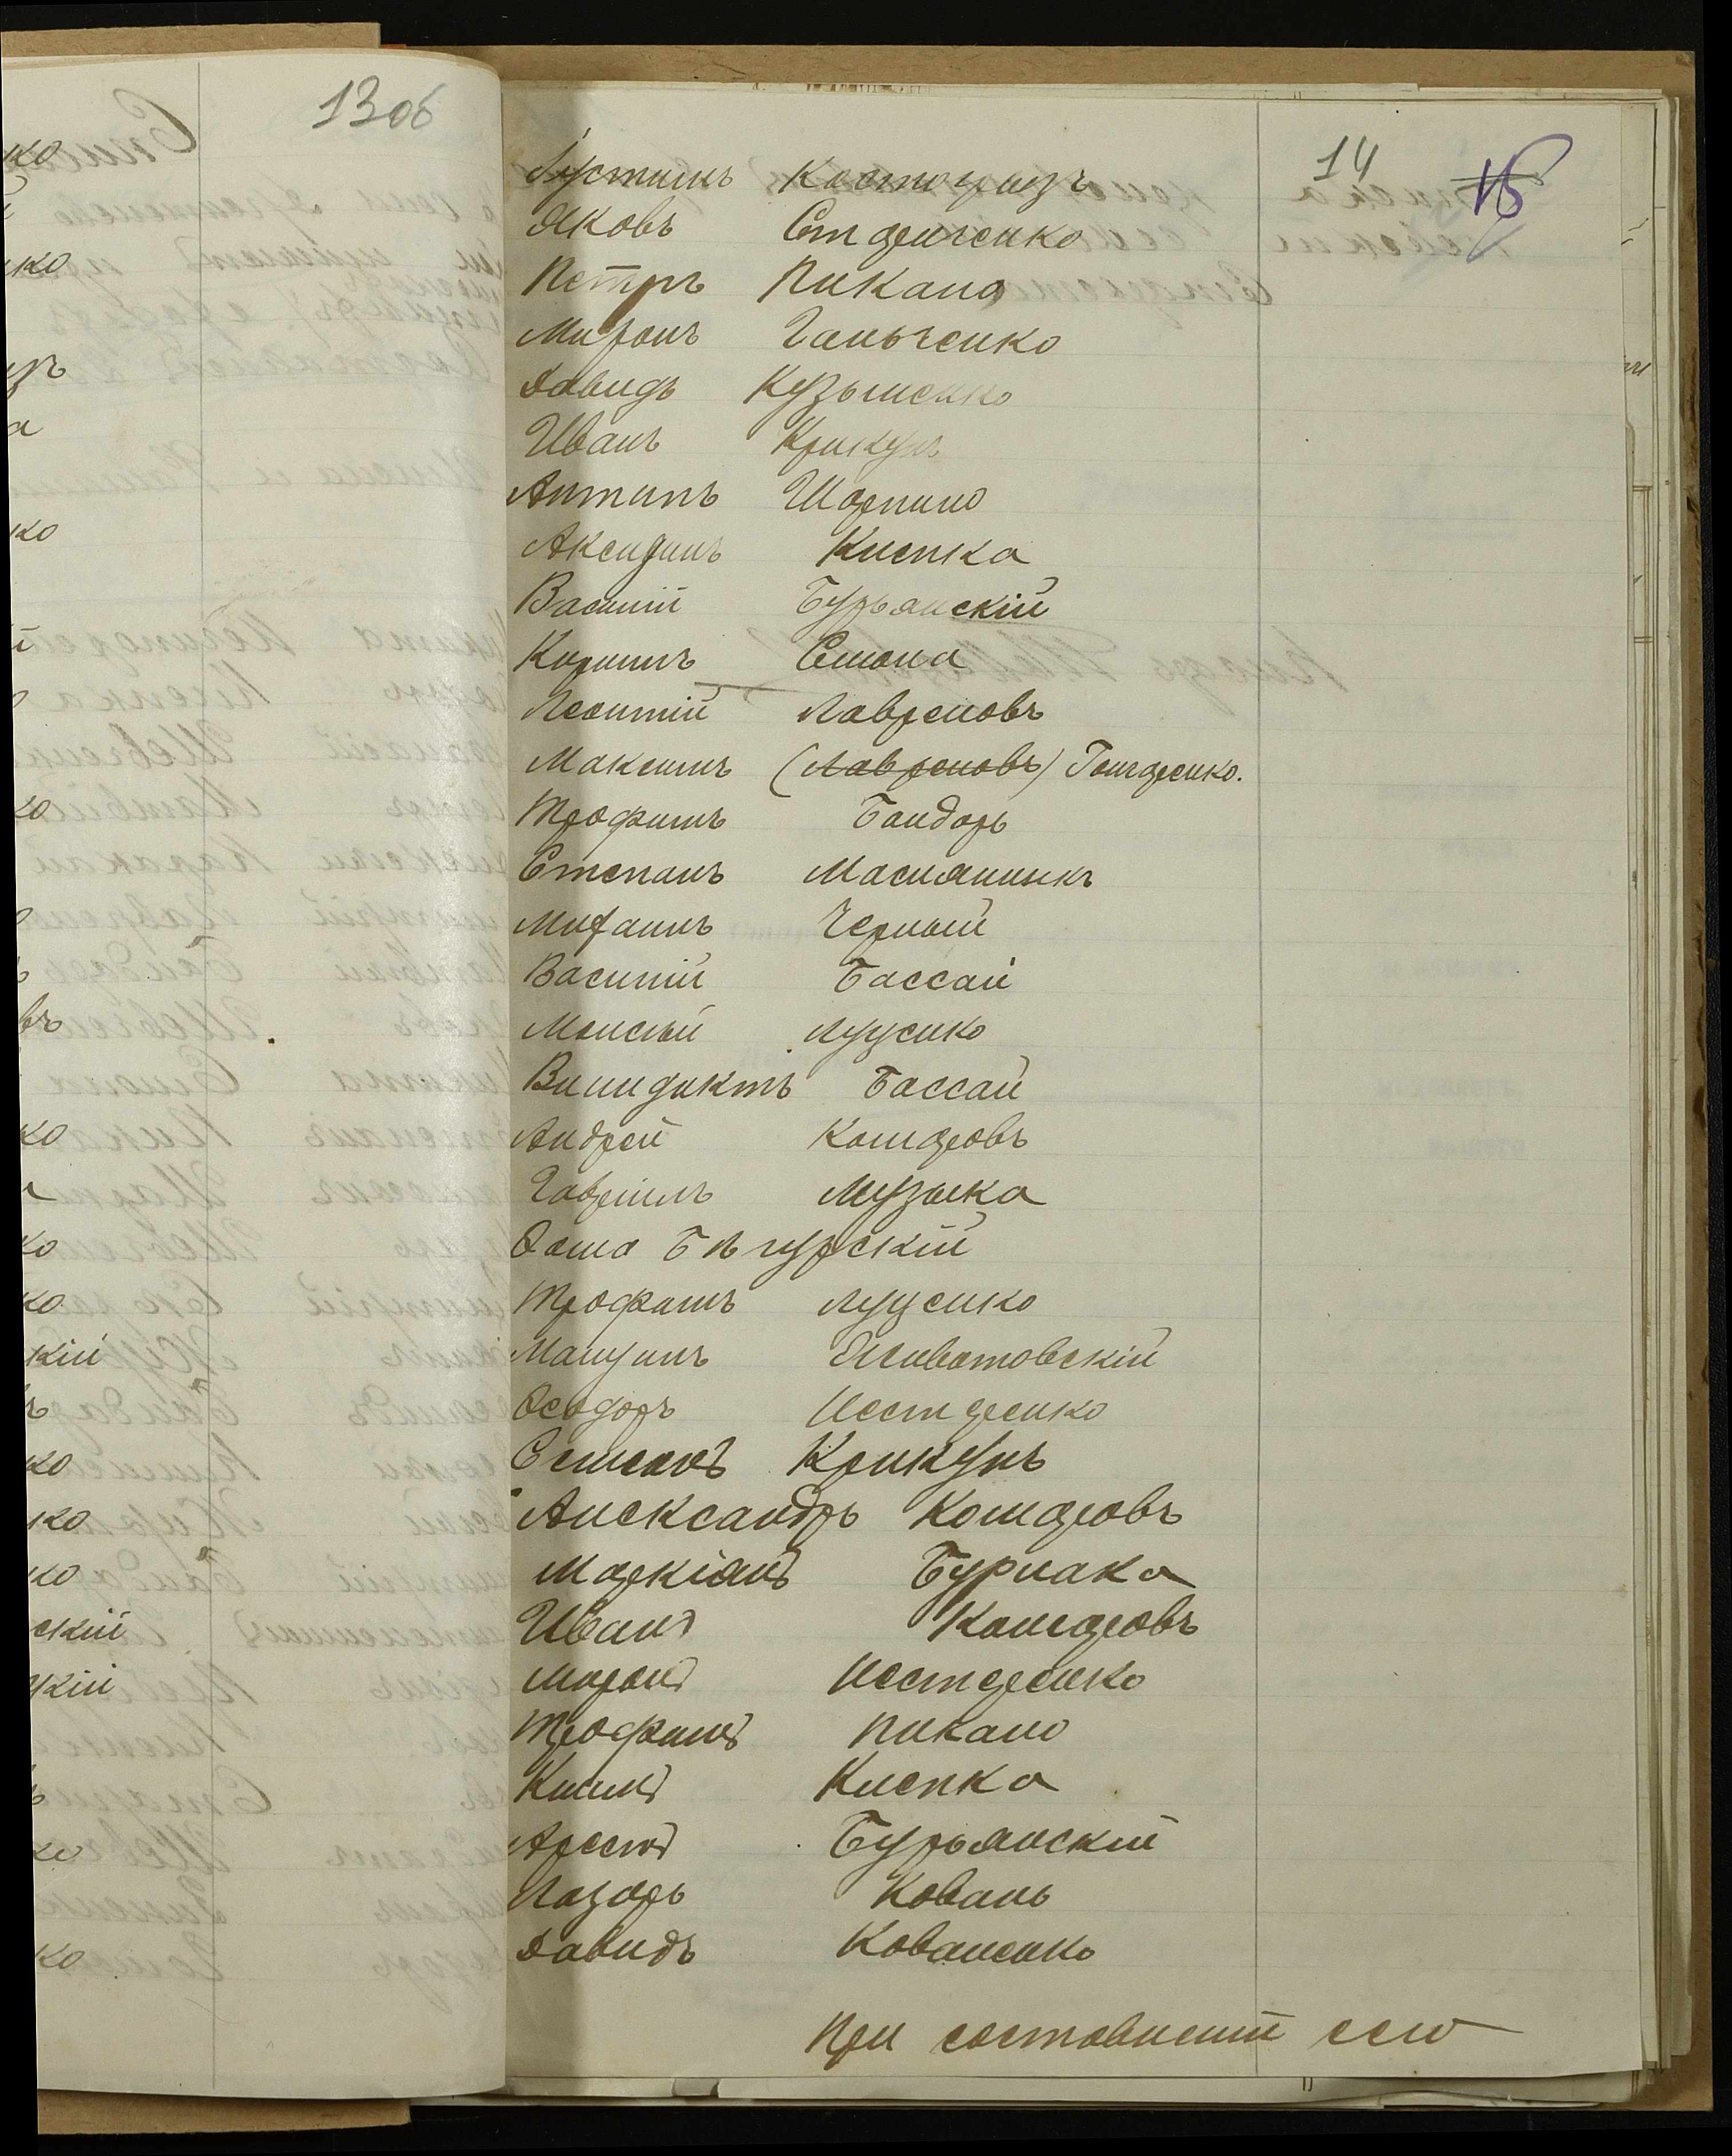 13об
ко
ко
зъ
а
ко
ко
въ
ко
ко
ко
кій
ко
ко
ко
скій
кій
ко
ко
14 15
Іустинъ Костогызъ
Яковъ Стадниченко
Петръ Пикано
Миронъ Ганьченко
Давидъ Кузьменко
Иванъ Крикунъ
Антипъ Шарпило
Аксидинъ Клепка
Василій Бурьянскій
Кирилъ Смола
Леонтій Лавреновъ
Максимъ (Лавреновъ) Гончаренко.
Трофимъ Бондарь
Степанъ Маслянникъ
Митаилъ Черный
Василій Бассай
Моисей Луценко
Винидиктъ Бассай
Андрей Комаровъ
Гавріилъ Музыка
Фома Бѣгурскій
Трофимъ Луценко
Мануилъ Животовскій
Феодоръ Нестеренко
Семеонъ Крикунъ
Александръ Комаровъ
Маркіанъ Бурлака
Иванъ Комаровъ
Миронъ Нестеренко
Трофимъ Пикало
Климъ Клепка
Арсенъ Бурьянскій
Лазарь Коваль
Давидъ Коваленко
При составленіи сего